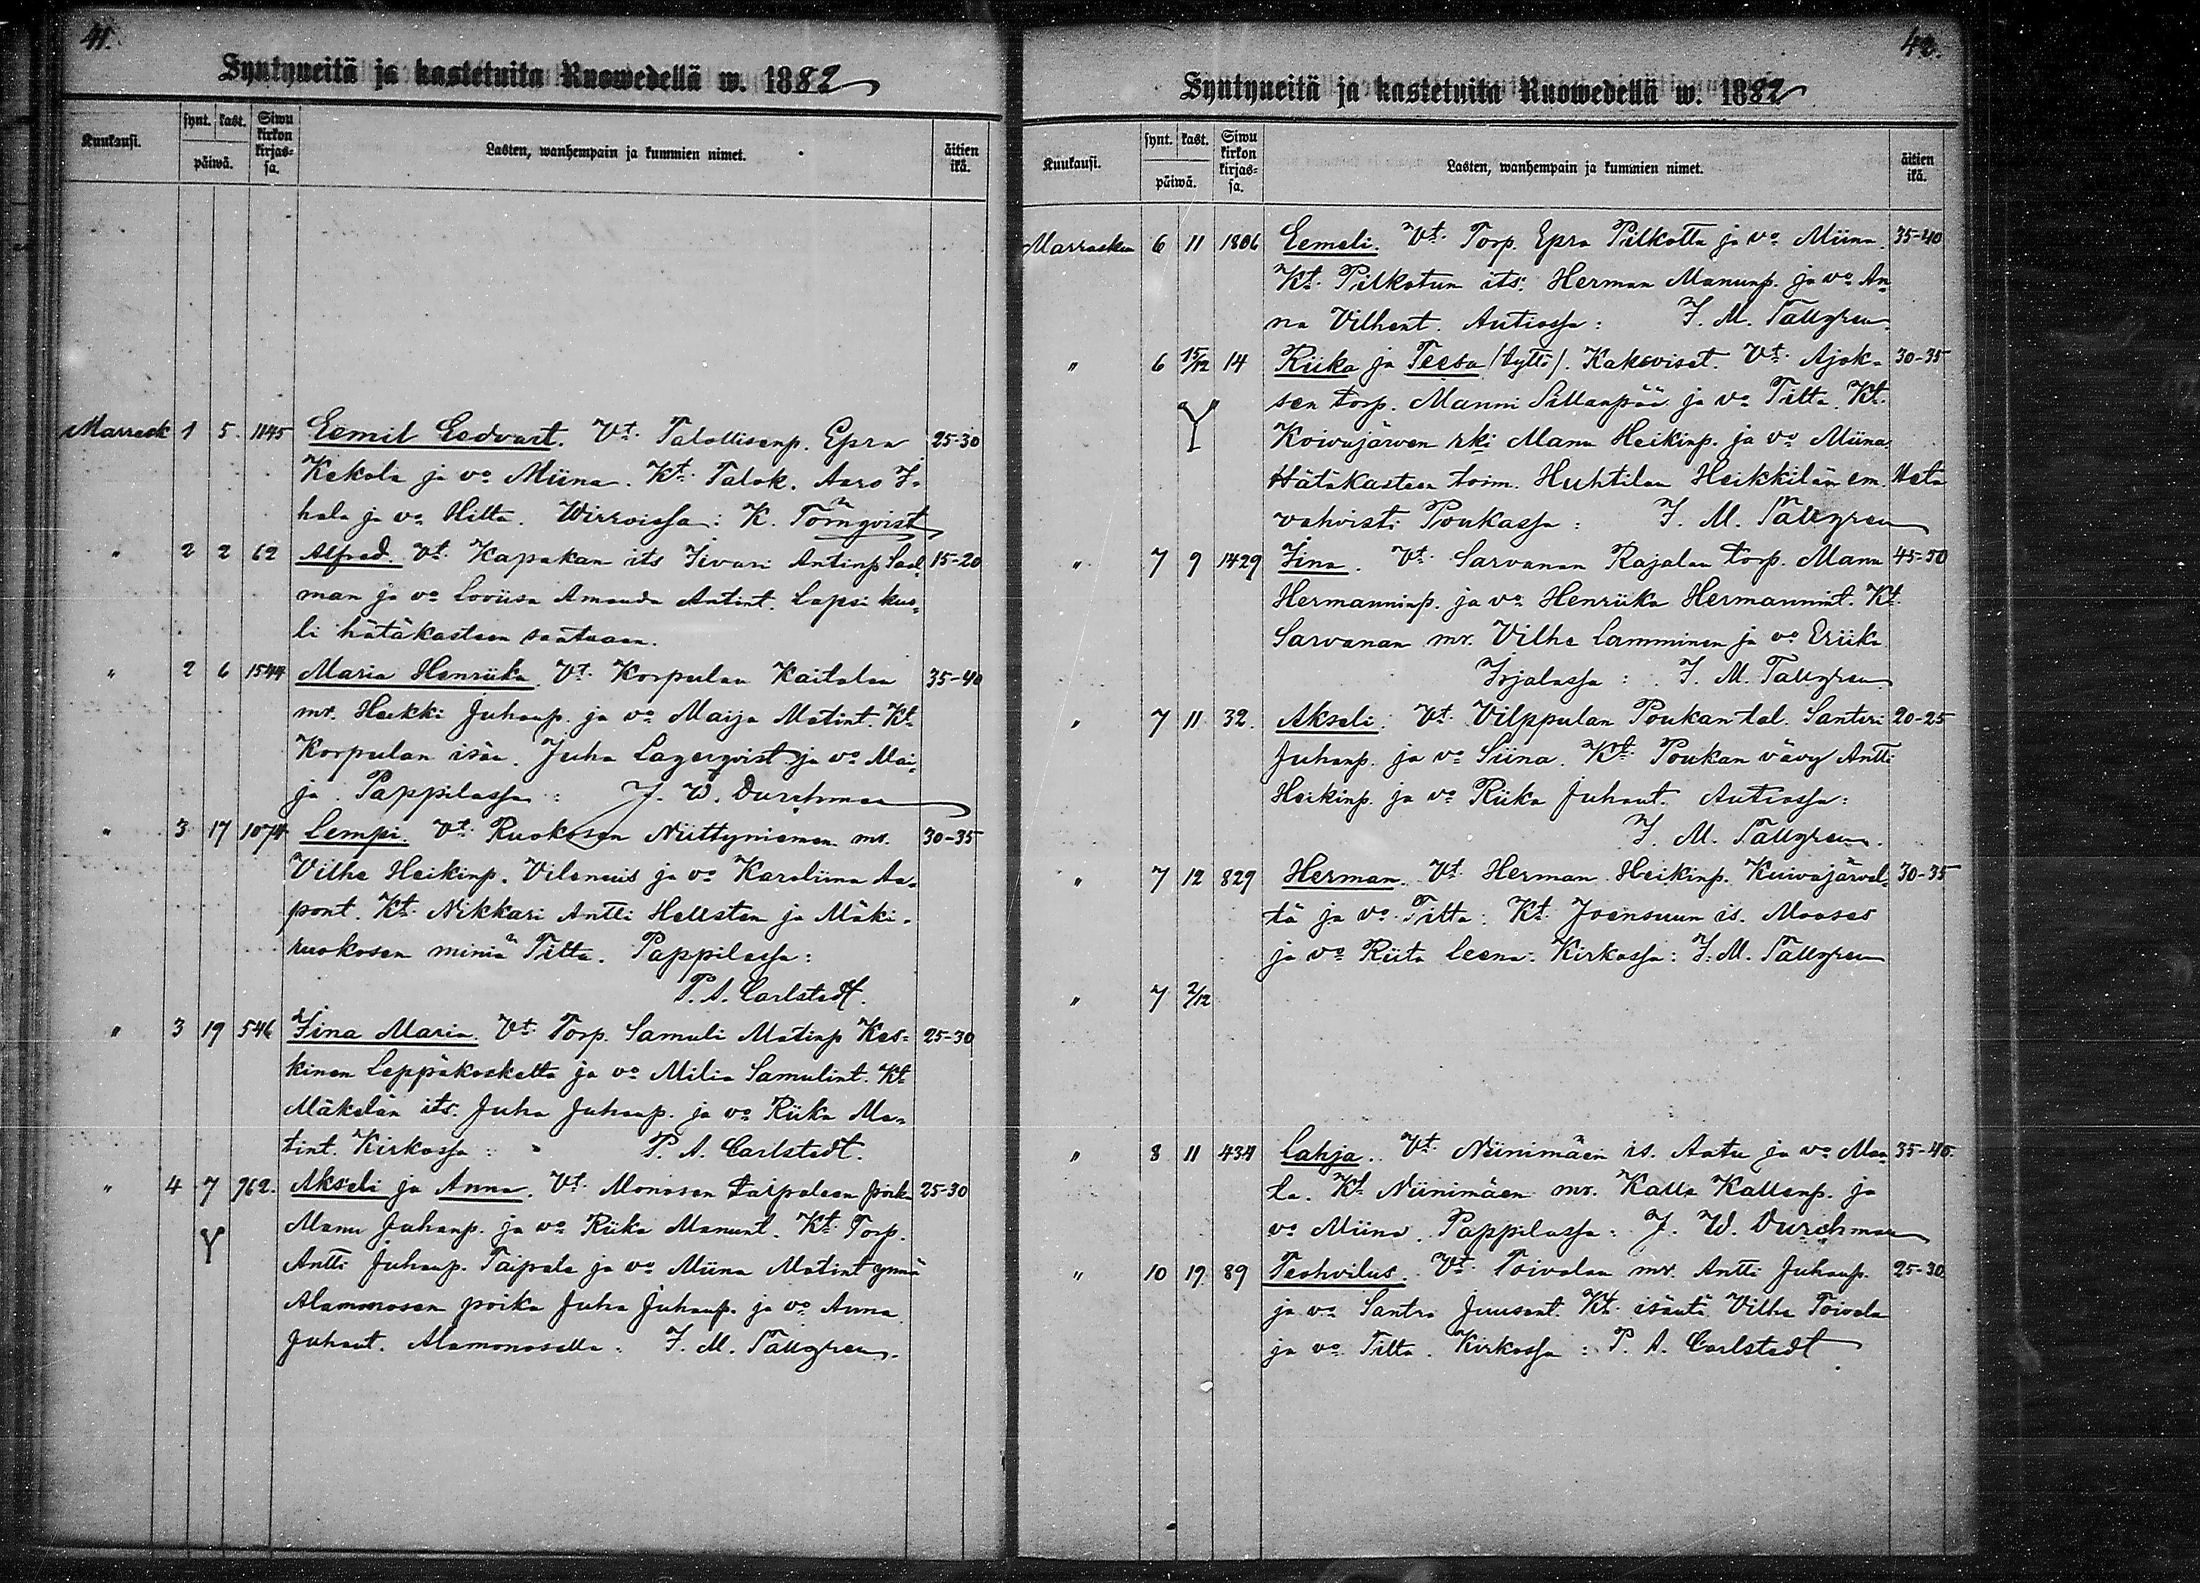 41.
Syntyneitä ja kastetuita Ruowedellä w. 1882
Kuukausi.
synt. kast.
päiwä.
Siwu kirkon kirjas-sa.
Lasten, wanhempain ja kummien nimet.
äitien ikä.
Marrask 1 5 1145 Eemil Eedvart. Vt. Talollisenp. Epra 25-30
Kekola ja vo Miina. Kt. Talok. Aaro I-
hala ja vo Hilta. Wirroissa: K. Törnqvist
" 2 2 62 Alfred. Vt. Kapakan its Iivari Antinp Saal- 15-20
man ja vo Loviisa Amanda Antint. Lapsi kuo-
li hätäkasteen saatuaan.
" 2 6 1544 Maria Henriika. Vt. Korpulan Kaitalan 35-40
mr. Heikki Juhanp. ja vo Maija Matint. Kt.
Korpulan isän. Juha Lagerqvist ja vo Mai-
ja. Pappilassa: J. W. Durchman
" 3 17 1074 Lempi. Vt. Ruokosen Niittyniemen mr. 30-35
Vilhe Heikinp. Vilenius ja vo Karoliina Aa-
pont. Kt. Nikkari Antti Hellsten ja Mäki-
ruokosen miniä Tilta. Pappilassa:
P. A. Carlstedt.
" 3 19 546 Iina Maria. Vt. Torp. Samuli Matinp Kes- 25-30
kinen Leppäkoskelta ja vo Milia Samulint. Kt
Mäkelän its. Juha Juhanp. ja vo Riika Ma-
tint. Kirkossa: P. A. Carlstedt.
" 4 7 762. Akseli ja Anna. Vt. Monosen Taipaleen poika 25-30
Manu Juhanp. ja vo Riika Manunt. Kt. Torp.
Antti Juhanp. Taipale ja vo Miina Matint ynnä
Alamonosen poika Juha Juhanp. ja vo Anna
Juhant. Alamonosella: I. M. Tallgren.
42.
Syntyneitä ja kastetuita Ruowedellä w. 1882
Kuukausi.
synt. kast.
päiwä.
Siwu kirkon kirjas-sa.
Lasten, wanhempain ja kummien nimet.
äitien ikä.
Marraskuu 6 11 1806 Eemeli. Vt. Torp. Epra Pilkotta ja vo Miina. 35-40
Kt. Pilkotun its: Herman Manunp. ja vo An-
na Vilhent. Autiossa: I. M. Tallgren.
" 6 15/12 14 Riika ja Teesa (tyttö). Kaksoiset. Vt. Ajok- 30-35
sen torp. Manni Sillanpää ja vo Tilta. Kt.
Koivujärven rki Manu Heikinp. ja vo Miina.
Hätäkasteen toim. Huhtilan Heikkilän em. Heta
vahvisti Poukassa: I. M. Tallgren
" 7 9 1429 Iina. Vt. Sarvanan Rajalan torp. Manu 45-50
Hermanninp. ja vo Henriika Hermannint. Kt.
Sarvanan mr. Vilhe Lamminen ja vo Eriika
Irjalassa: I. M. Tallgren.
" 7 11 32. Akseli. Vt. Vilppulan Poukan tal. Santeri 20-25
Juhanp. ja vo Siina. Kt. Poukan vävy Antti
Heikinp. ja vo Riika Juhant. Autiossa:
I. M. Tallgren.
" 7 12 829 Herman. Vt. Herman Heikinp. Kuivajärvel- 30-35
tä ja vo Tilta. Kt. Joensuun is. Mooses
ja vo Riita Leena: Kirkossa: I. M. Tallgren
" 7 2/12
" 8 11 434 Lahja. Vt. Niinimäen is. Aatu ja vo Man- 35-40.
ta. Kt Niinimäen mr. Kalle Kallenp. ja
vo Miina. Pappilassa: J. W. Durchman
" 10 19 89 Teohvilus. Vt. Toivolan mr. Antti Juhanp. 25-30
ja vo Santra Juusent. Kt. isäntä Vilhe Toivola
ja vo Tilta. Kirkossa: P. A. Carlstedt